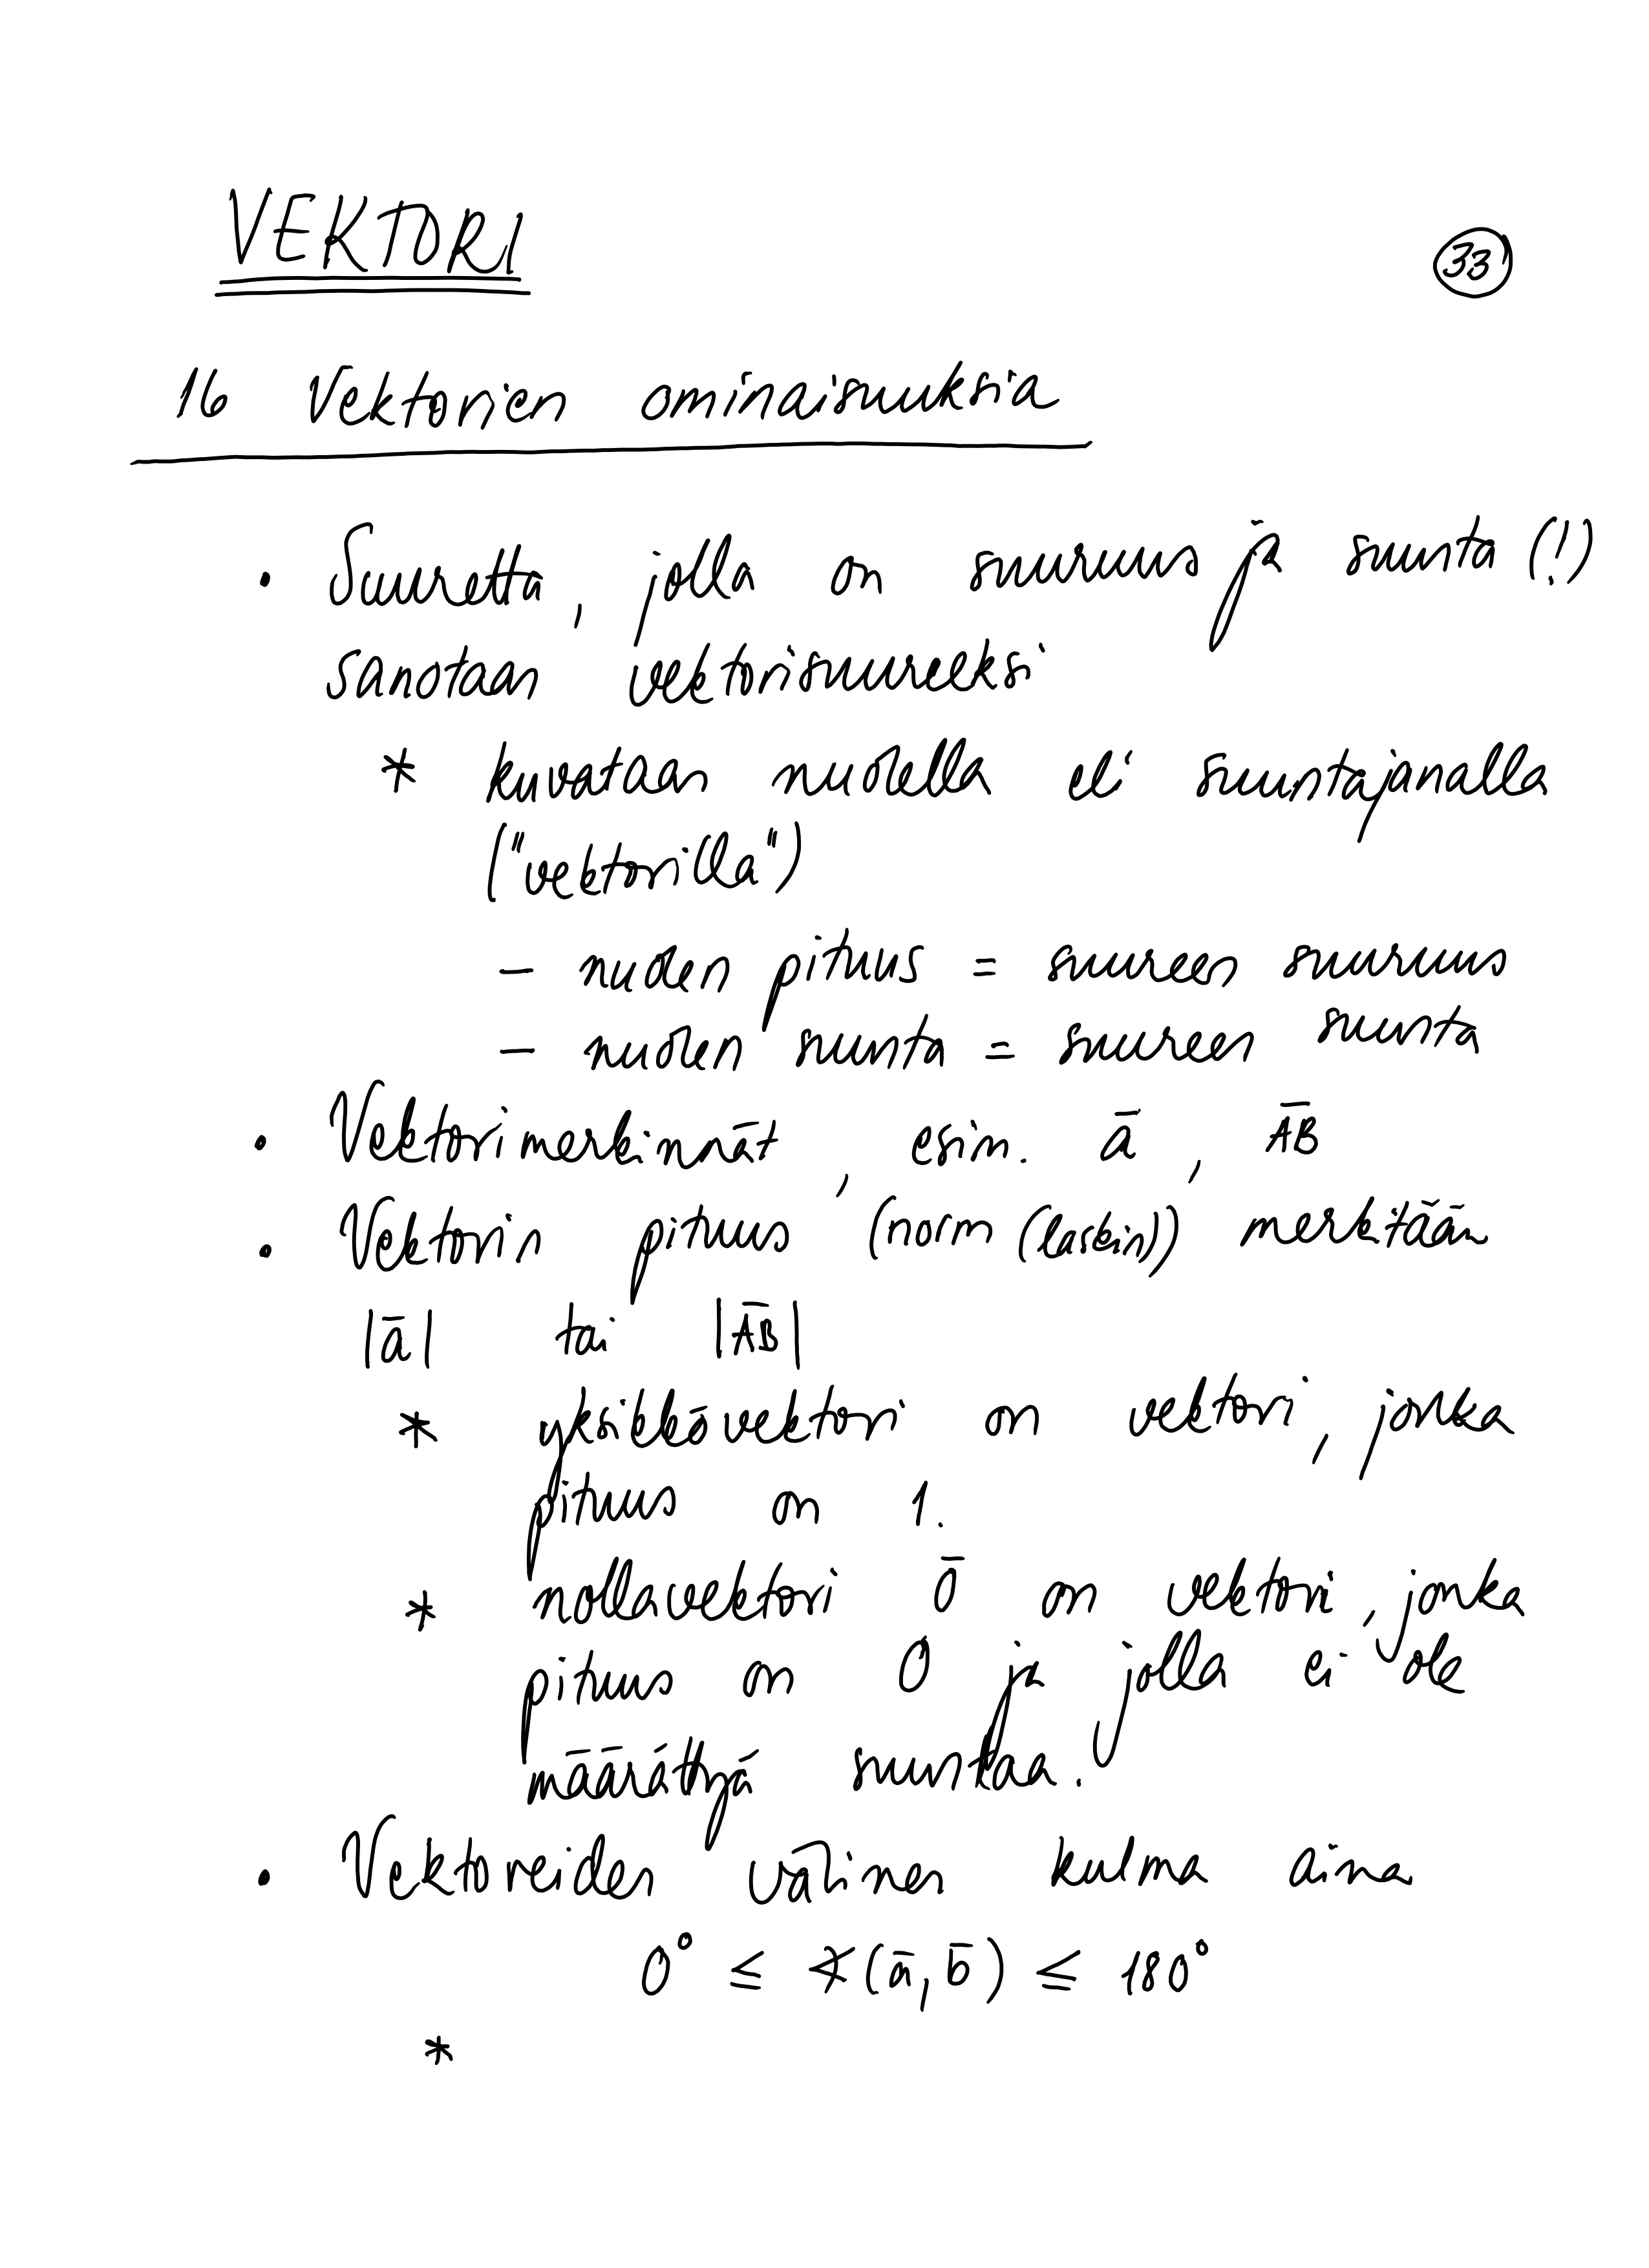 VEKTORI
33
16 Vektorien ominaisuuksia
• Suuretta, jolla on suuruus ja suunta (!)
sanotaan vektorisuureeksi
* kuvataan nuolella eli suuntajanalla
("vektorilla")
- nuolen pituus = suureen suuruus
- nuolen suunta = suureen suunta
• Vektorimerkinnät, esim. ā, A̅B̅
• Vektorin pituus (norm (laskin)) merkitään
|ā| tai |A̅B̅|
* yksikkövektori on vektori, jonka
pituus on 1.
* nollavektori 0̅ on vektori, jonka
pituus on 0 ja jolla ei ole
määrättyä suuntaa.
• Vektoreiden välinen kulma aina
0° ≤ ∢(ā, b̅) ≤ 180°
*